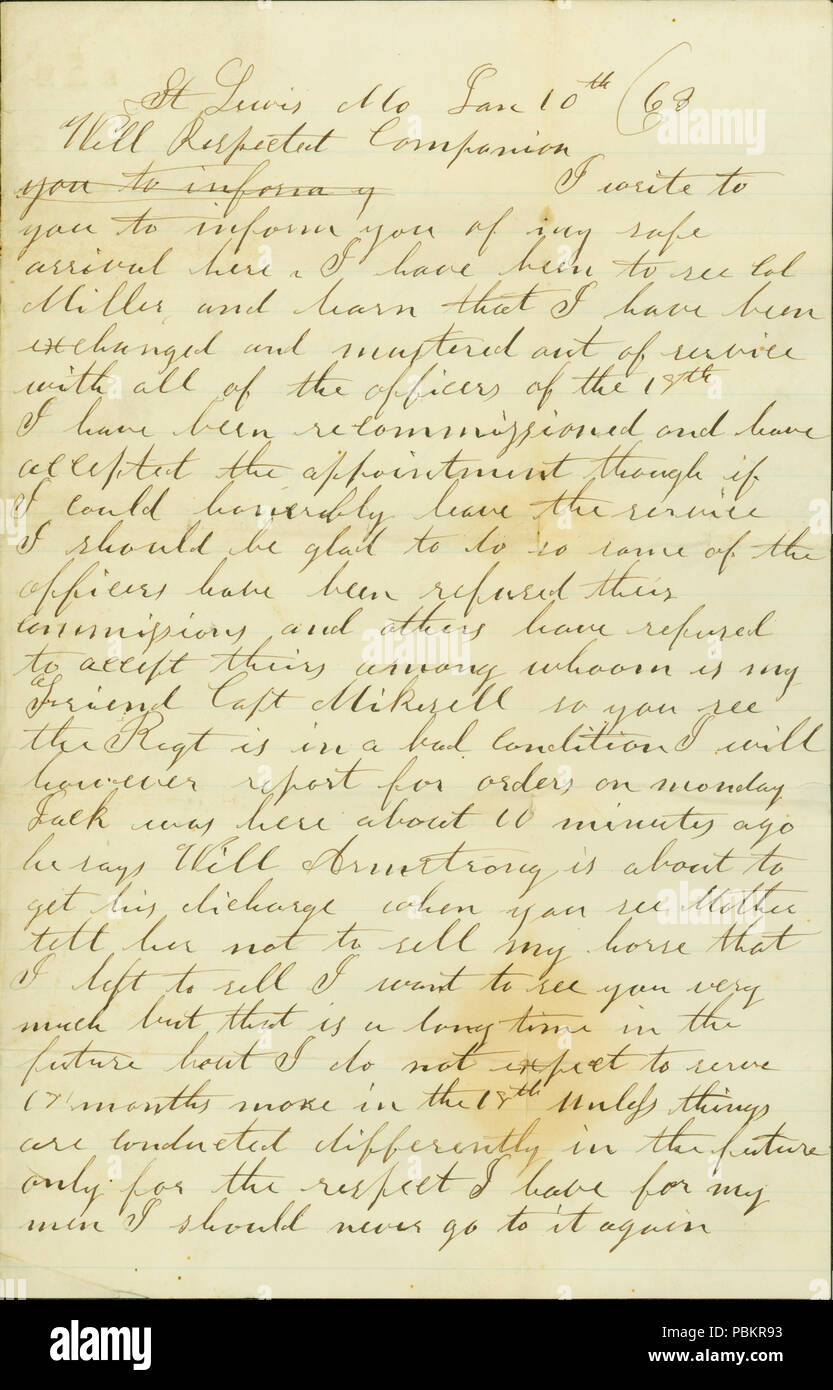 St Lewis Mo Jan 10th (63
Will Respected Companion
you to inform y I write to
you to inform you of my safe
arrival here. I have been to see Col
Miller, and learn that I have been
exchanged and mustered out of service
with all of the officers of the 18th
I have been recommissioned and have
accepted the appointment though if
I could honerably leave the service
I should be glad to do so some of the
officers have been refused their
commissions and others have refused
to accept theirs among whoom is my
Friend Capt Mikesell so you see
the Regt is in a bad condition I will
however report for orders on monday
Jack was here about 10 minutes ago
he says Will Armstrong is about to
get his dicharge when you see Mother
tell her not to sell my horse that
I left to sell I want to see you very
much but that is a long time in the
future bout I do not expect to serve
months more in the 18th Unless things
are conducted differently in the future
only for the respect I have for my
men I should never go to it again
alamy
Image ID: PBKR93
www.alamy.com